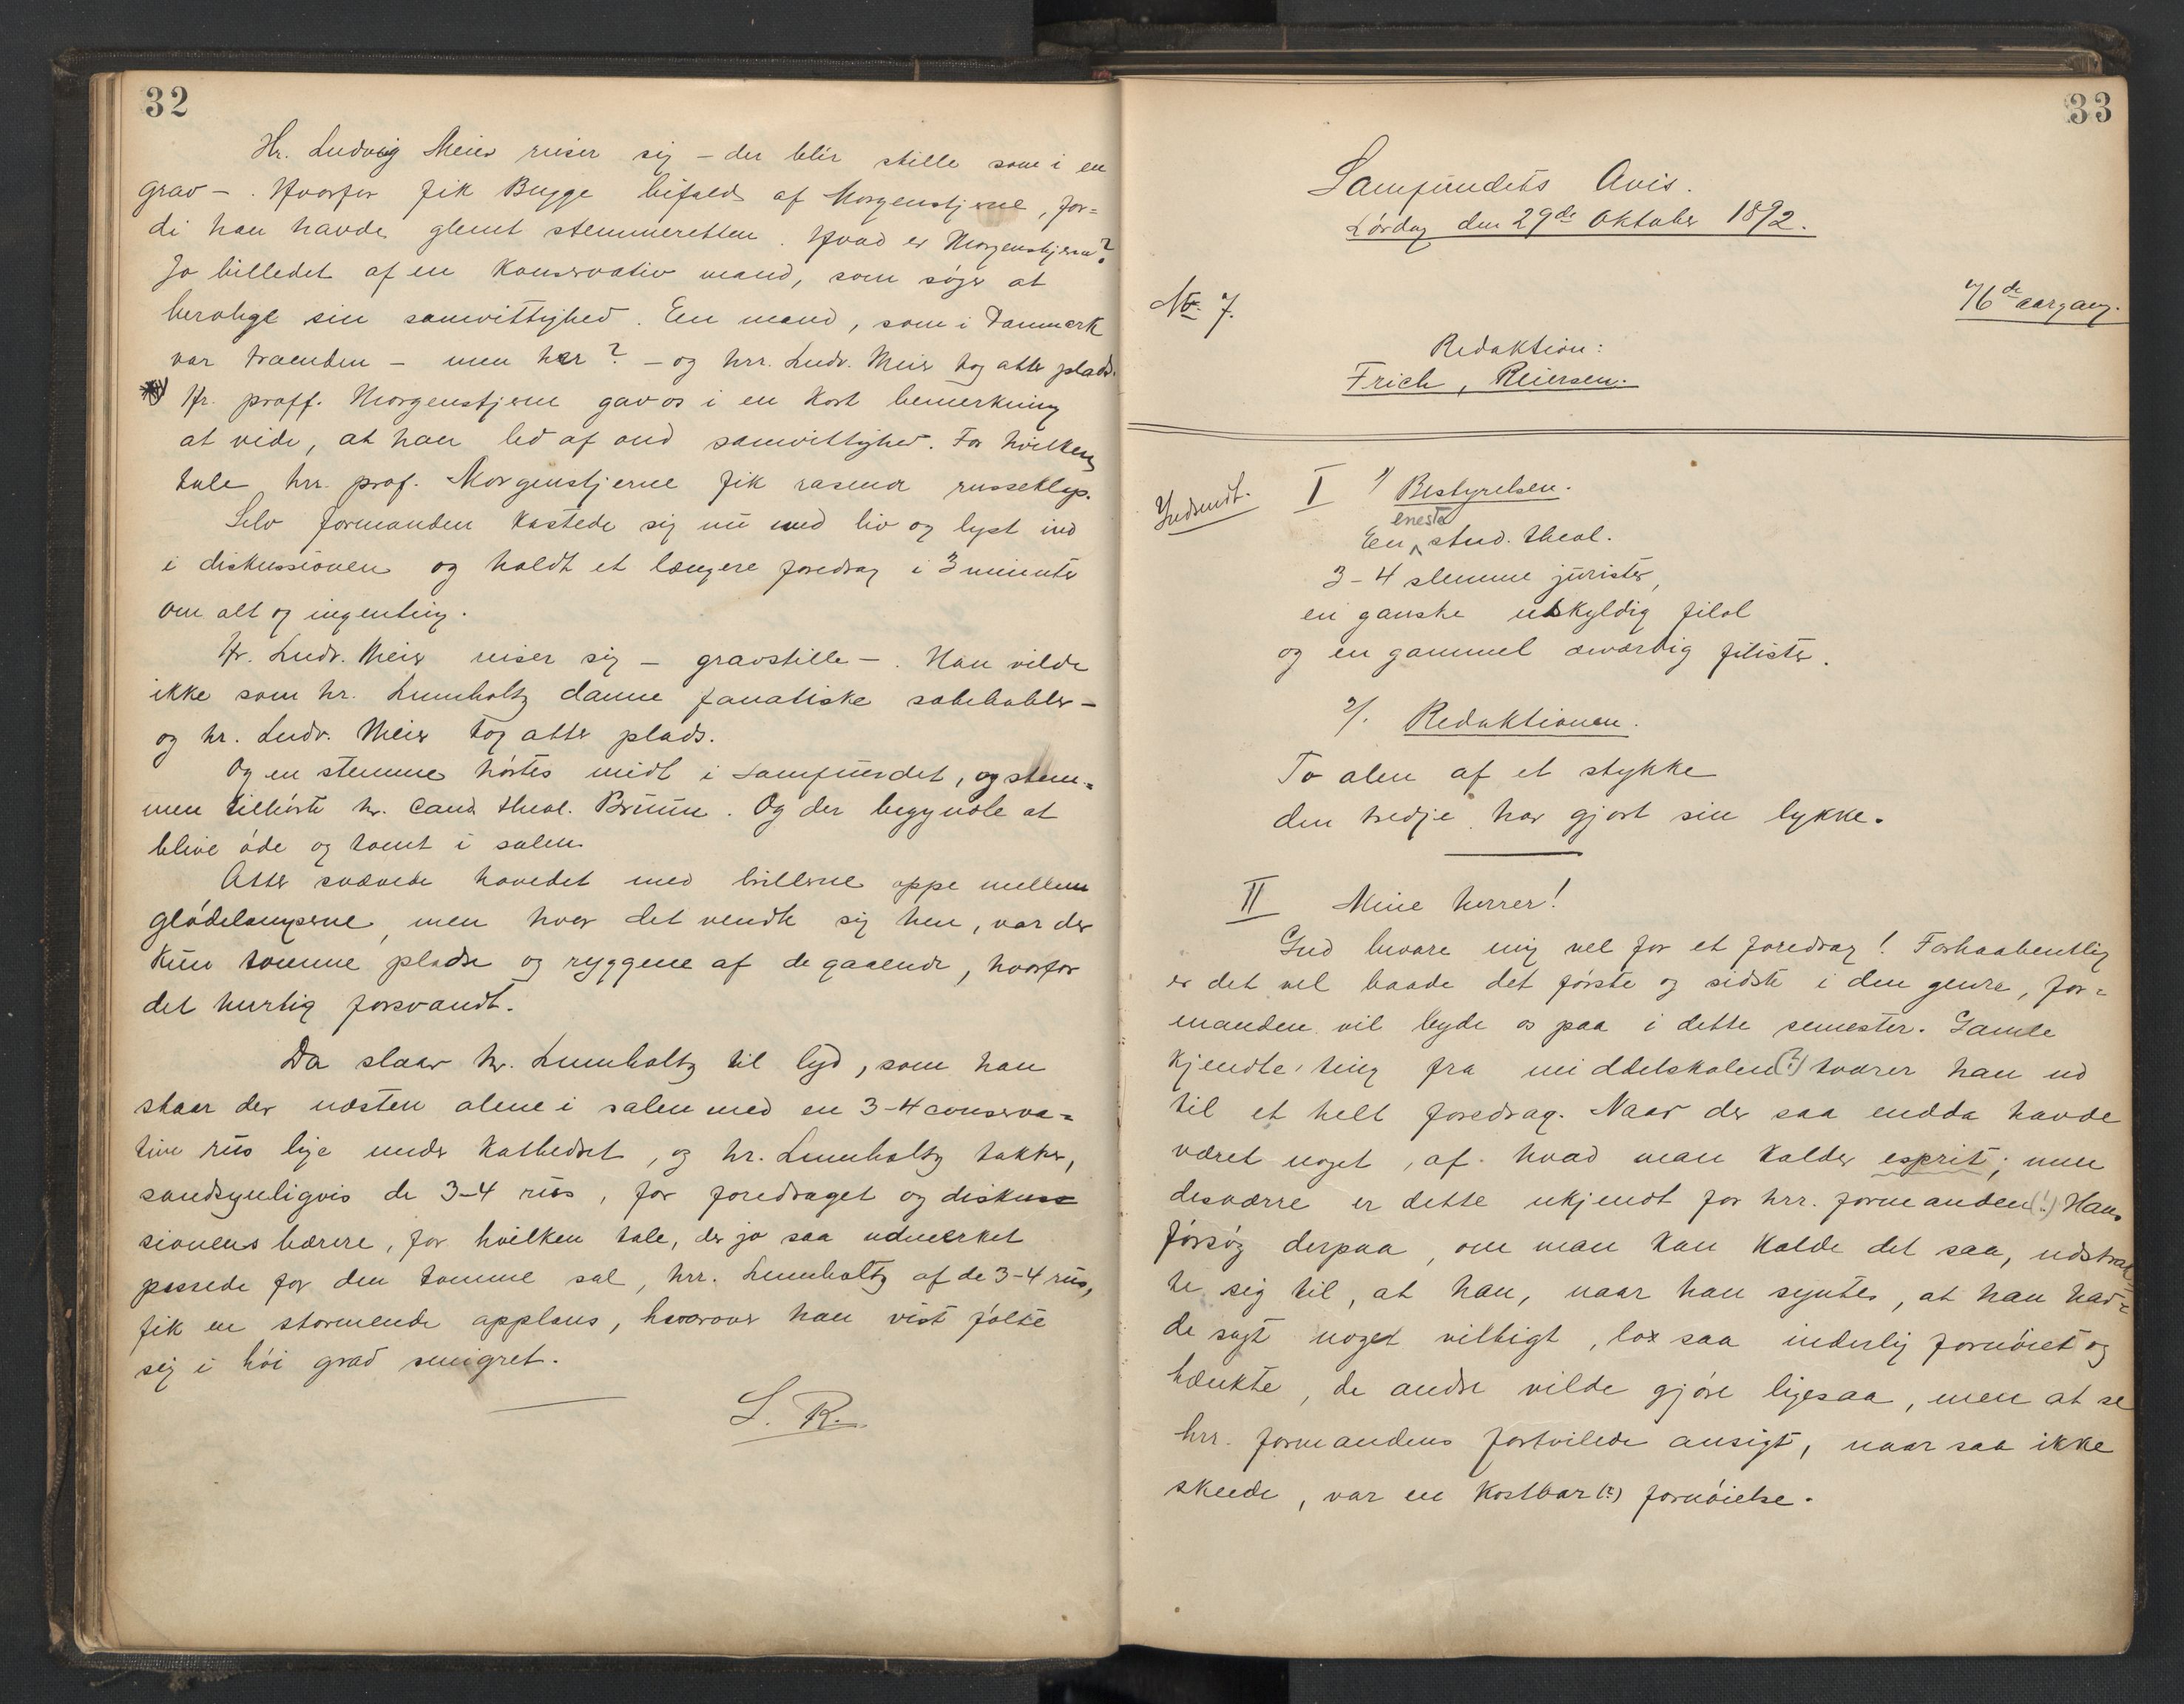 32
Hr. Ludvig Meier reiser sig – der blir stille som i en
grav – . Hvorfor fik Bugge bifald af Morgenstjerne, for=
di han havde glemt stemmeretten. Hvad er Morgenstjerne?
Jo billedet af en konservativ mand, som søger at
berolige sin samvittighed. En mand, som i Danmark
var – men her? – og hrr. Ludv. Meier tog atter plads.
Hr. proff. Morgenstjerne gav os i en kort bemerkning
at vide, at han led af ond samvittighed. For hvilken
tale hrr. prof. Morgenstjerne fik rasende russeklap.
Selv formanden kastede sig nu med liv og lyst ind
i diskussionen og holdt et længere foredrag i 3 minuter
om alt og ingenting.
Hr. Ludv. Meier reiser sig – gravstille – . Han vilde
ikke som hr. Lumholtz danne fanatiske sæbebobler –
og hr. Ludv. Meier tog atter plads.
Og en stemme hørtes midt i samfundet, og stem=
men tilhørte hr. cand. theol. Bruun. Og der begyndte at
blive øde og tomt i salen.
Atter svævede hovedet med brillerne oppe mellem
glødelamperne, men hvor det vendte sig hen, var der
kun tomme pladse og ryggene af de gaaende, hvorfor
det hurtig forsvandt.
Da slaar hr. Lumholtz til lyd, som han
staar der næsten alene i salen med en 3-4 conserva=
tive rus lige under kathedret, og hr. Lumholtz takker,
sandsynligvis de 3-4 rus, for foredraget og diskus=
sionens bærere, for hvilken tale, der jo saa udmerket
passede for den tomme sal, hrr. Lumholtz af de 3-4 rus,
fik en stormende applaus, hvorover han vist følte
sig i høi grad smigret.
S. R.
33
Samfundets Avis.
Lørdag den 29de Oktober 1892.
No. 7.
76de aargang.
Redaktion:
Frich, Reiersen.
Indsendt.
I 1/ Bestyrelsen.
eneste
En stud. theol.
3-4 slemme jurister,
en ganske uskyldig filol
og en gammel ærværdig filister.
2/. Redaktionen.
To alen af et stykke
den tredje har gjort sin lykke.
II Mine herrer!
Gud bevare mig vel for et foredrag! Forhaabentlig
er det vel baade det første og sidste i den genre, for=
manden vil byde os paa i dette semester. Gamle
kjendte ting fra middelskolen(?) tværer han ud
til et helt foredrag. Naar der saa endda havde
været noget, af hvad man kalder esprit; men
desværre er dette ukjendt for hrr. formanden(!) Hans
forsøg derpaa, om man kan kalde det saa, udstrak=
te sig til, at han, naar han syntes, at han hav=
de sagt noget vittigt, lo saa inderlig fornøiet og
tænkte, de andre vilde gjøre ligesaa, men at se
hrr. formandens fortvilede ansigt, naar saa ikke
skede, var en kostbar (?) fornøielse.